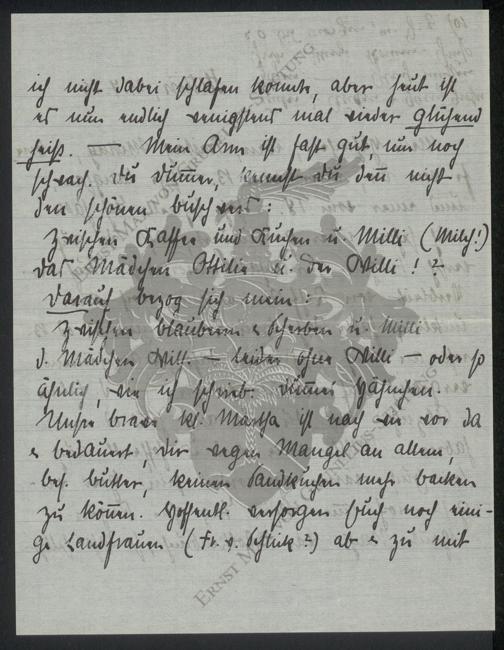 ich nicht dabei schlafen konnte, aber heut ist
es nun endlich wenigstens mal wieder glühend
heiß. — Mein Arm ist fast gut, nur noch
schwach. Du Dummer, kennst du denn nicht
den schönen Buschvers:
Zwischen Kaffee und Kuchen u. Milli (Milch!)
das Mädchen Ottilie u. der Willi! ?
Darauf bezog sich mein:
Zwischen Blaubeern & Scherben u. Milli
d. Mädchen Will. — leider ohne Willi — oder so
ähnlich, wie ich schrieb. Dummes Hähnchen.
Unsre brave kl. Martha ist nach wie vor da
& bedauert, dir wegen Mangel an allem,
bes. Butter, keinen Sandkuchen mehr backen
zu können. Hoffentl. versorgen Euch noch eini-
ge Landfrauen (Fr. v. Schlick?) ab & zu mit
ERNST MAGNUS-CORNELIUS-STIFTUNG